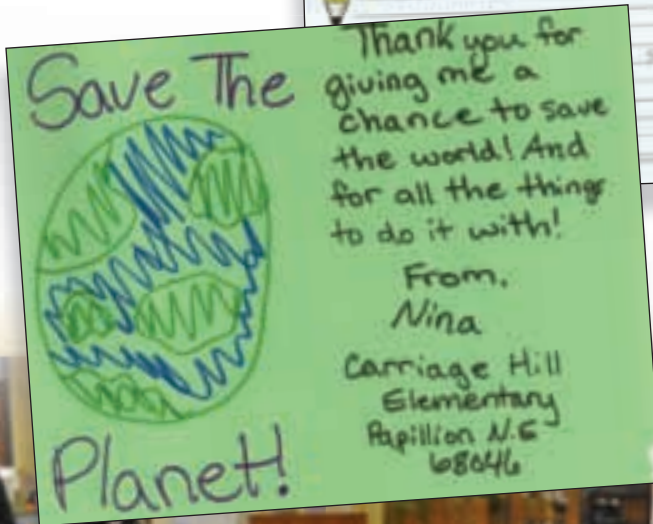 Save The
Planet!
Thank you for
giving me a
chance to save
the world! And
for all the things
to do it with!
From,
Nina
Carriage Hill
Elementary
Papillion N.E
68046